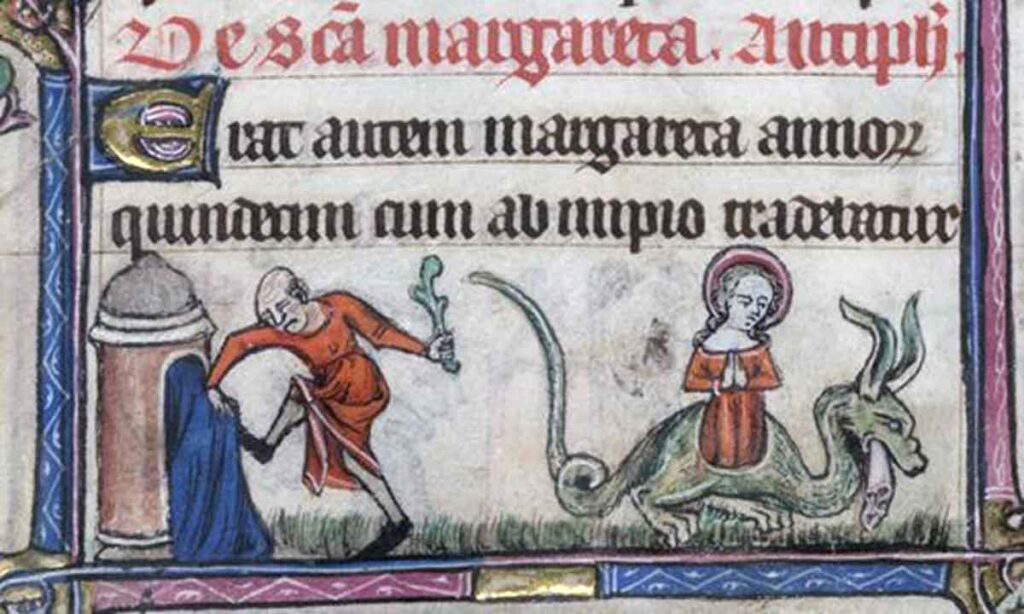 De scã margareta. Antiph̃.
Erat autem margareta annoꝝ
quindecim cum ab impio traderatur